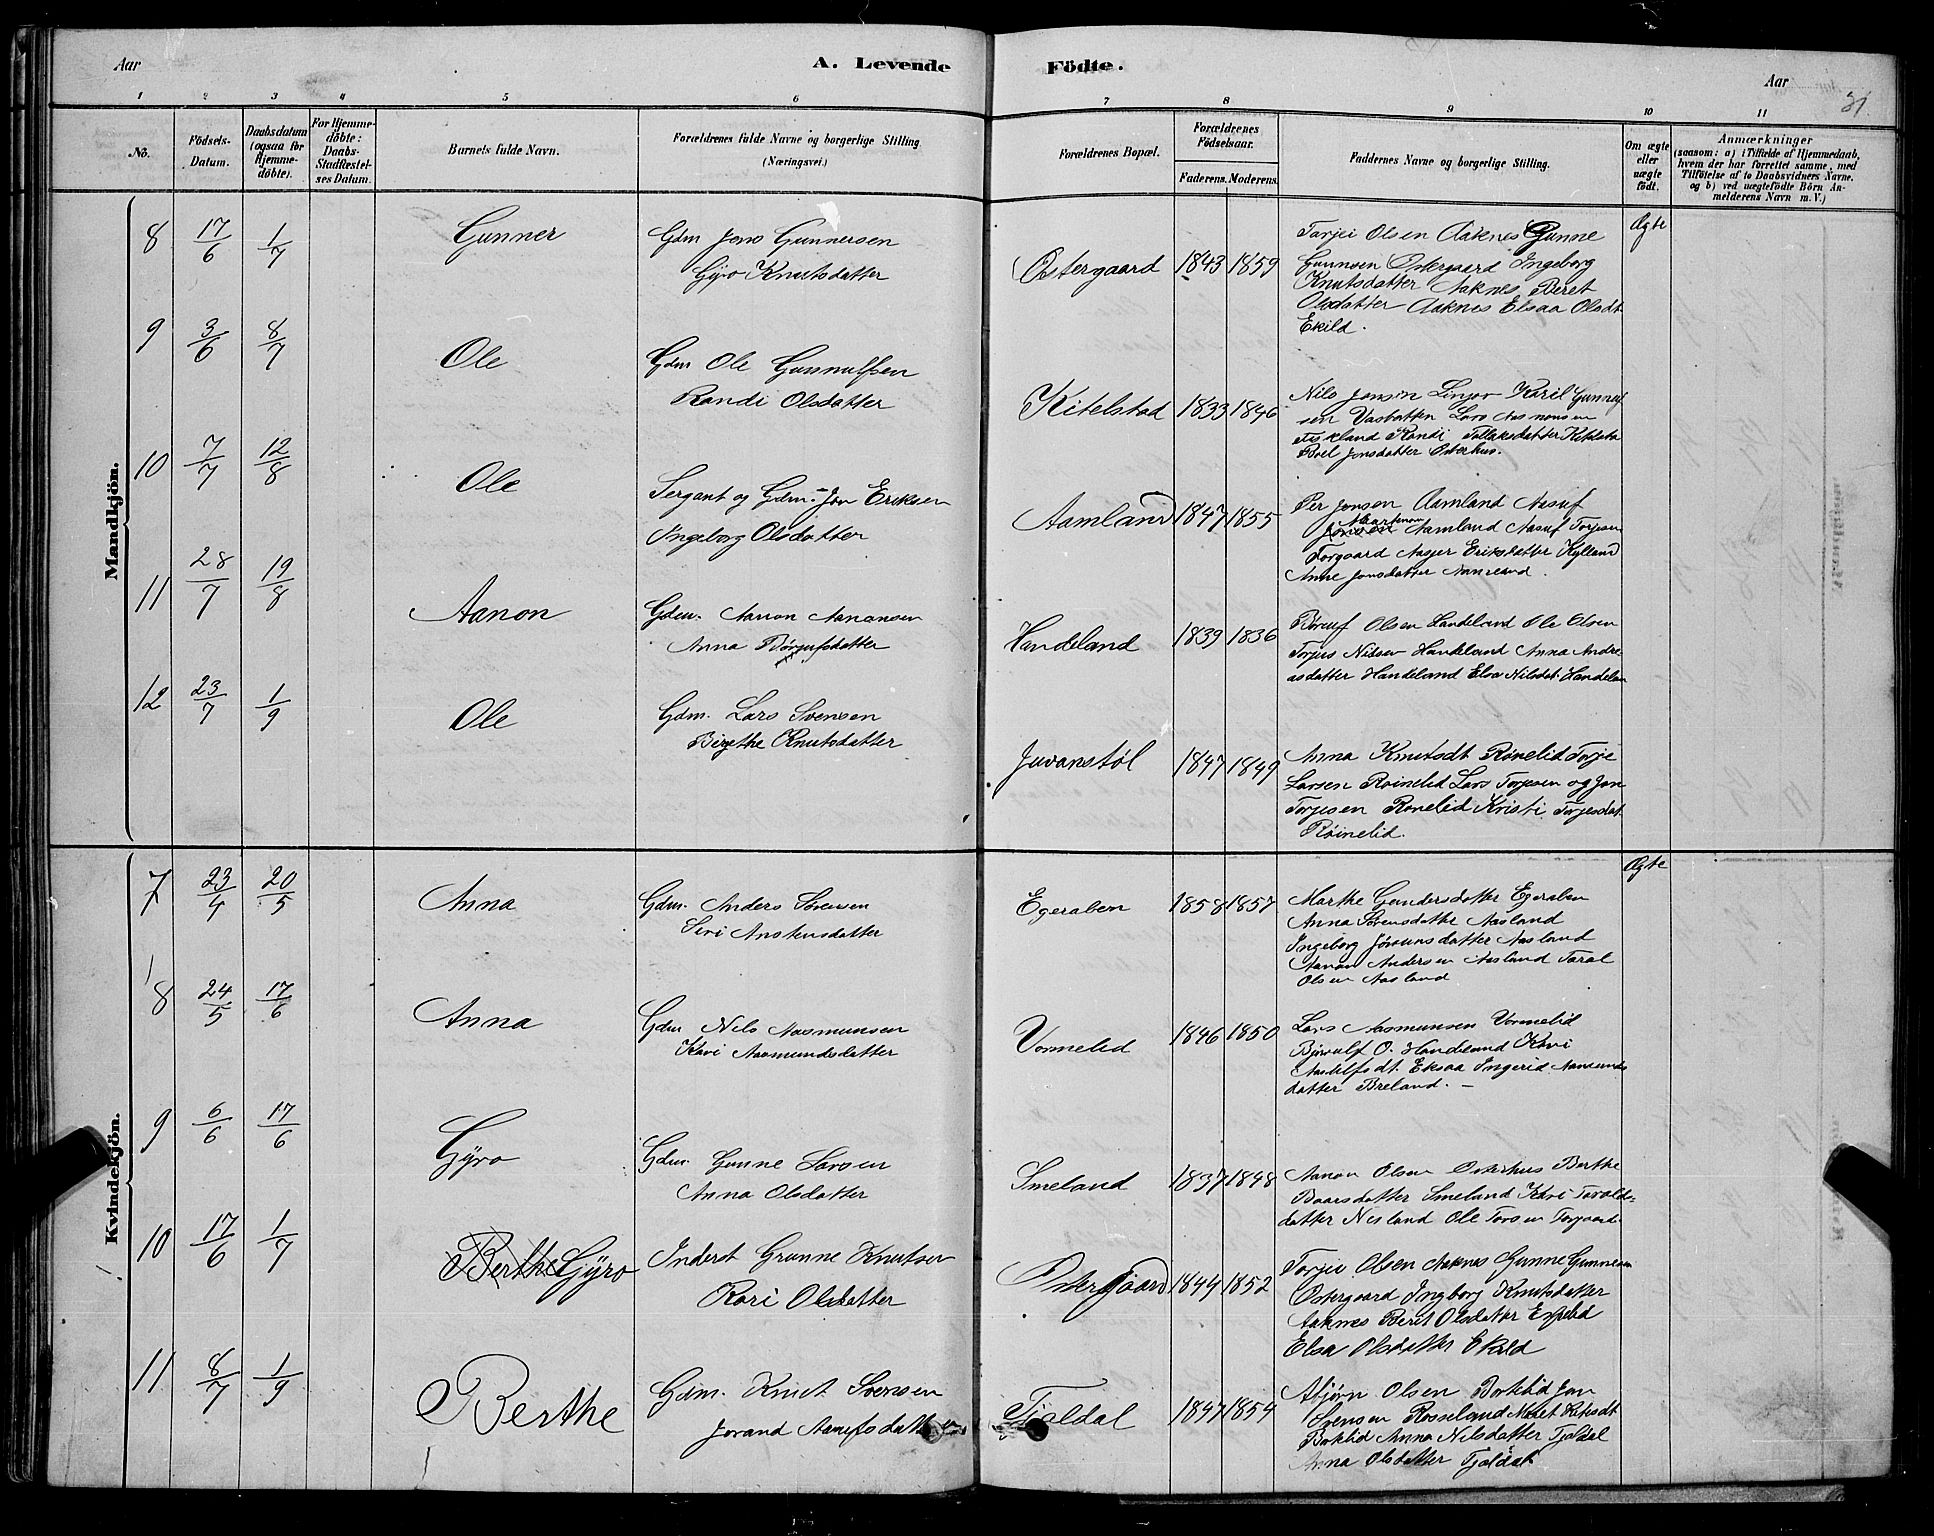 Aar
A. Levende
Födte.
Aar
31.
1 2 3 4 5 6 7 8 9 10 11
No.
Födsels-
Datum.
Daabsdatum
(ogsaa for
Hjemme-
döbte).
For Hjemme-
döbte:
Daabs-
Stadfæstel-
ses Datum.
Barnets fulde Navn.
Forældrenes fulde Navne og borgerlige Stilling.
(Næringsvei.)
Forældrenes Bopæl.
Forældrenes
Födselsaar.
Faderens. Moderens.
Faddernes Navne og borgerlige Stilling.
Om ægte
eller
uægte
født.
Anmærkninger
(saasom: a) i Tilfælde af Hjemmedaab,
hvem der har forrettet samme, med
Tilföielse af to Daabsvidners Navne.
og b) ved uægtefödte Börn An-
melderens Navn m. V.)
Mandkjön.
8 17/6 1/7 Gunner
Gdm Jens Gunnersen
Gyro Knutsdatter
Ostergaard 1843 1859
Torjei Olsen Aaknes Gunne
Gunnsen Ostergaard Ingeborg
Knutsdatter Aaknes Beret
Olsdatter Aaknes Elsaa Olsdt
Ekild.
Ægte
9 3/6 8/7 Ole
Gdm Ole Gunnulfsen
Randi Olsdatter
Kitelstad 1833 1846
Nils Jonsen
Randi Tollaksdatter
Boel Jonsdatter Osterhus.
10 7/7 12/8 Ole
Sergant og Gdm. Jon Eriksen
Ingeborg Olsdatter
Aamland 1847 1855
Per Jonsen Aamland Aasuf
Aamland Aasuf Torjesen
Torgaard Eriksdatter Kylland
Anne Jonsdatter
11 28/7 19/8 Aanon
Gdm. Aanon Aanonsen
Anna Börjufsdatter
Handeland 1839 1836
Olsen Handeland Ole Olsen
Torjus Nilsen Handeland Anna Andre-
asdatter Handeland Elsa Nilsdat. Handelan
12 23/7 1/9 Ole
Gdm. Lars Svensen
Birgthe Knutsdatter
Juvanstöl 1847 1849
Anna Knutsdt Rönelid Torje
Larsen Röinelid Lars Torjesen og Jon
Torjesen Ronelid Kristi Torjesdat
Röinelid.
Kvindekjön.
7 23/4 20/5 Anna
Gdm. Anders Sörensen
Siri Anstensdatter
Egeraben 1858 1857
Marthe Gundersdatter Egeraben
Anna Sörensdatter Aasland
Ingeborg Jörunsdatter Aasland
Aanon Andersen Aasland Taral
Olsen Aasland
Ægte
8 24/5 17/6 Anna
Gdm Nils Aasmunsen
Kari Aasmundsdatter
Vormelid 1846 1850
Lars Aasmunsen Vormelid
Björulf O. Handeland Kari
Eksaa Ingerid Aamunds
datter Breland. -
9 6/6 17/6 Gyro
Gdm. Gunne Larsen
Anna Olsdatter
Smeland 1837 1848
Aanon Olsen Osterhus Berthe
Baarsdatter Smeland Kari Tarald-
datter Nesland Ole Torsen Torgaard.
10 17/6 1/7 Berthe Gyro
Inderst Gunne Knutsen
Kari Olsdatter
Ostergaard 1844 1852
Torjei Olsen Aaknes Gunne Gunnesen
Ostergaard Ingborg Knutsdatter
Aaknes Beret Olsdatter
Elsa Olsdatter Ekild
11 8/7 1/9 Berthe
Gdm. Knut Svensen
Jorand Aanufsdatter
Tjaldal 1847 1854
Asbjörn Olsen Jon
Svensen Rosseland
Anna Nilsdatter Tjaldal
Anna Olsdatter Tjaldal